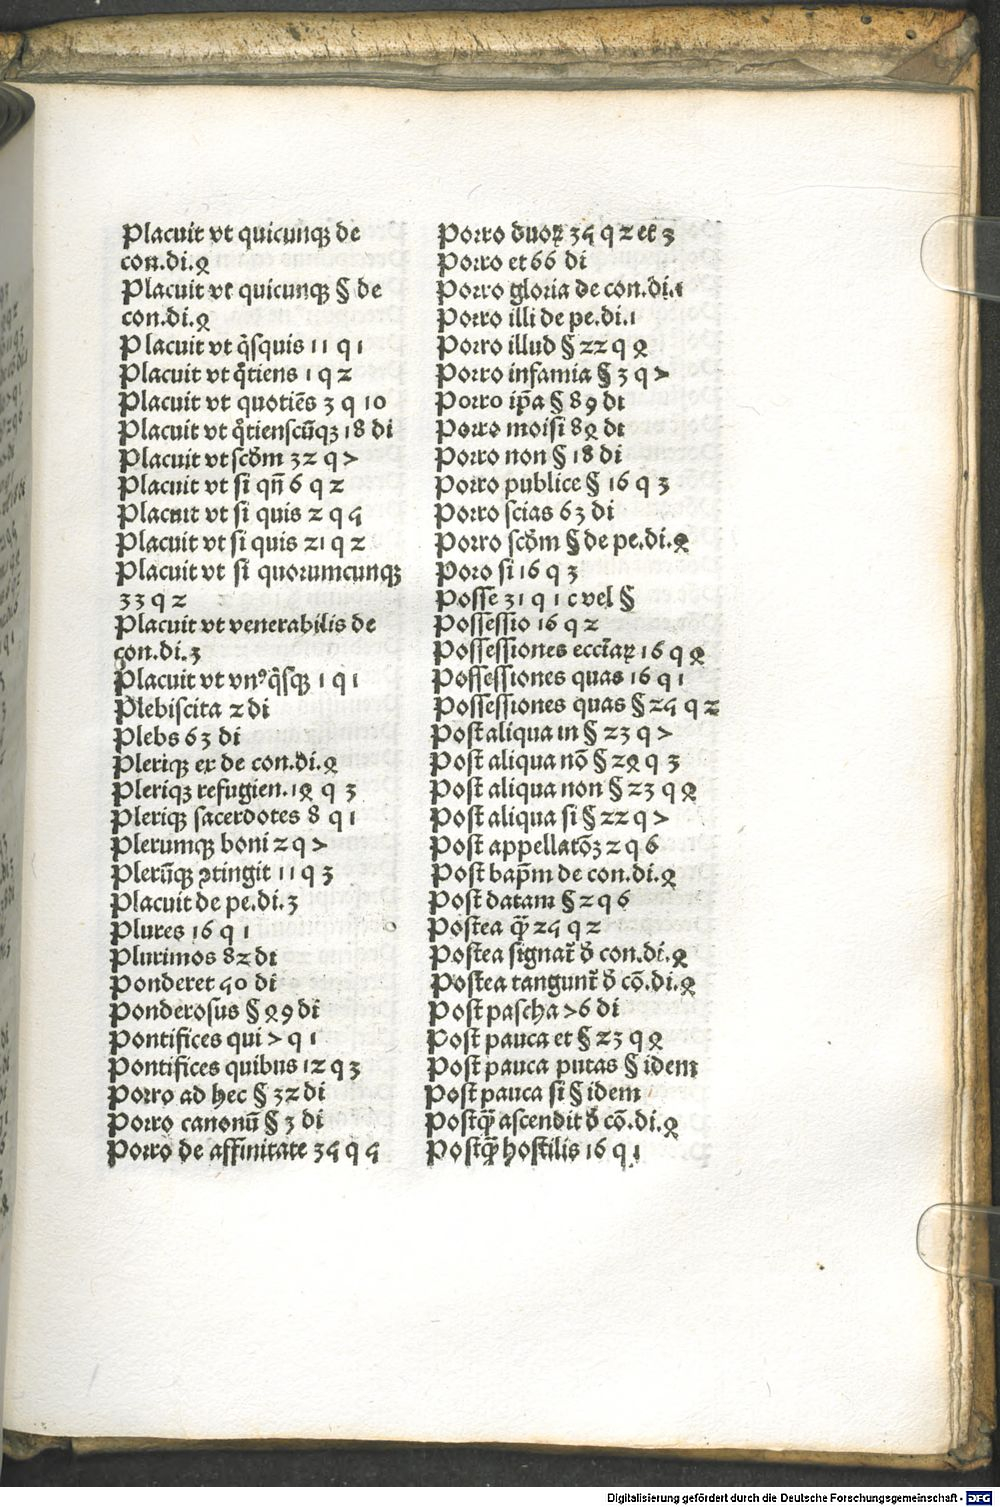 Placuit vt quicunqꝫ de
con.di.4
Placuit vt quicunqꝫ § de
con.di.4
Placuit vt q̊squis 11 q 1
Placuit vt q̊tiens 1 q 2
Placuit vt quotiēs 3 q 10
Placuit vt q̊tienscūqꝫ 18 di
Placuit vt scd̓m 32 q 7
Placuit vt si qn̄ 6 q 2
Placuit vt si quis 2 q 5
Placuit vt si quis 21 q 2
Placuit vt si quorumcunqꝫ
33 q 2
Placuit vt venerabilis de
con.di.3
Placuit vt vnꝰ q̊sqꝫ 1 q 1
Plebiscita 2 di
Plebs 63 di
Pleriqꝫ ex de con.di.4
Pleriqꝫ refugien.14 q 3
Pleriqꝫ sacerdotes 8 q 1
Plerumqꝫ boni 2 q 7
Plerūqꝫ ꝯtingit 11 q 3
Placuit de pe.di.3
Plures 16 q 1
Plurimos 82 di
Ponderet 50 di
Ponderosus § 49 di
Pontifices qui 7 q 1
Pontifices quibus 12 q 3
Porro ad hec § 32 di
Porro canonū § 3 di
Porro de affinitate 35 q 5
Porro duoꝝ 35 q 2 et 3
Porro et 66 di
Porro gloria de con.di.1
Porro illi de pe.di.1
Porro illud § 22 q 4
Porro infamia § 3 q 7
Porro ip̄a § 89 di
Porro moisi 84 di
Porro non § 18 di
Porro publice § 16 q 3
Porro scias 63 di
Porro scd̓m § de pe.di.4
Poro si 16 q 3
Posse 31 q 1 c vel §
Possessio 16 q 2
Possessiones eccl̄iaꝝ 16 q 4
Possessiones quas 16 q 1
Possessiones quas § 25 q 2
Post aliqua in § 23 q 7
Post aliqua nō § 24 q 3
Post aliqua non § 23 q 4
Post aliqua si § 22 q 7
Post appellatōꝫ 2 q 6
Post bap̄m de con.di.4
Post datam § 2 q 6
Postea qꝫ̄ 25 q 2
Postea signat̄ d̓ con.di.4
Postea tangunt̄ d̓ cō.di.4
Post pascha 76 di
Post pauca et § 23 q 4
Post pauca putas § idem
Post pauca si § idem
Postqꝫ̄ ascendit d̓ cō.di.4
Postqꝫ̄ hostilis 16 q 1
Digitalisierung gefördert durch die Deutsche Forschungsgemeinschaft - DFG